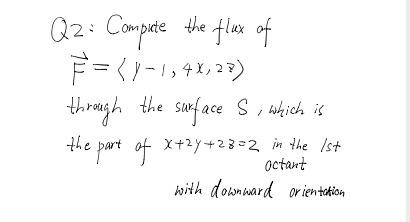 Q2: Compute the flux of
F⃗ = ⟨y-1, 4x, 2z⟩
through the surface S, which is
the part of x+2y+2z=2 in the 1st
octant
with downward orientation